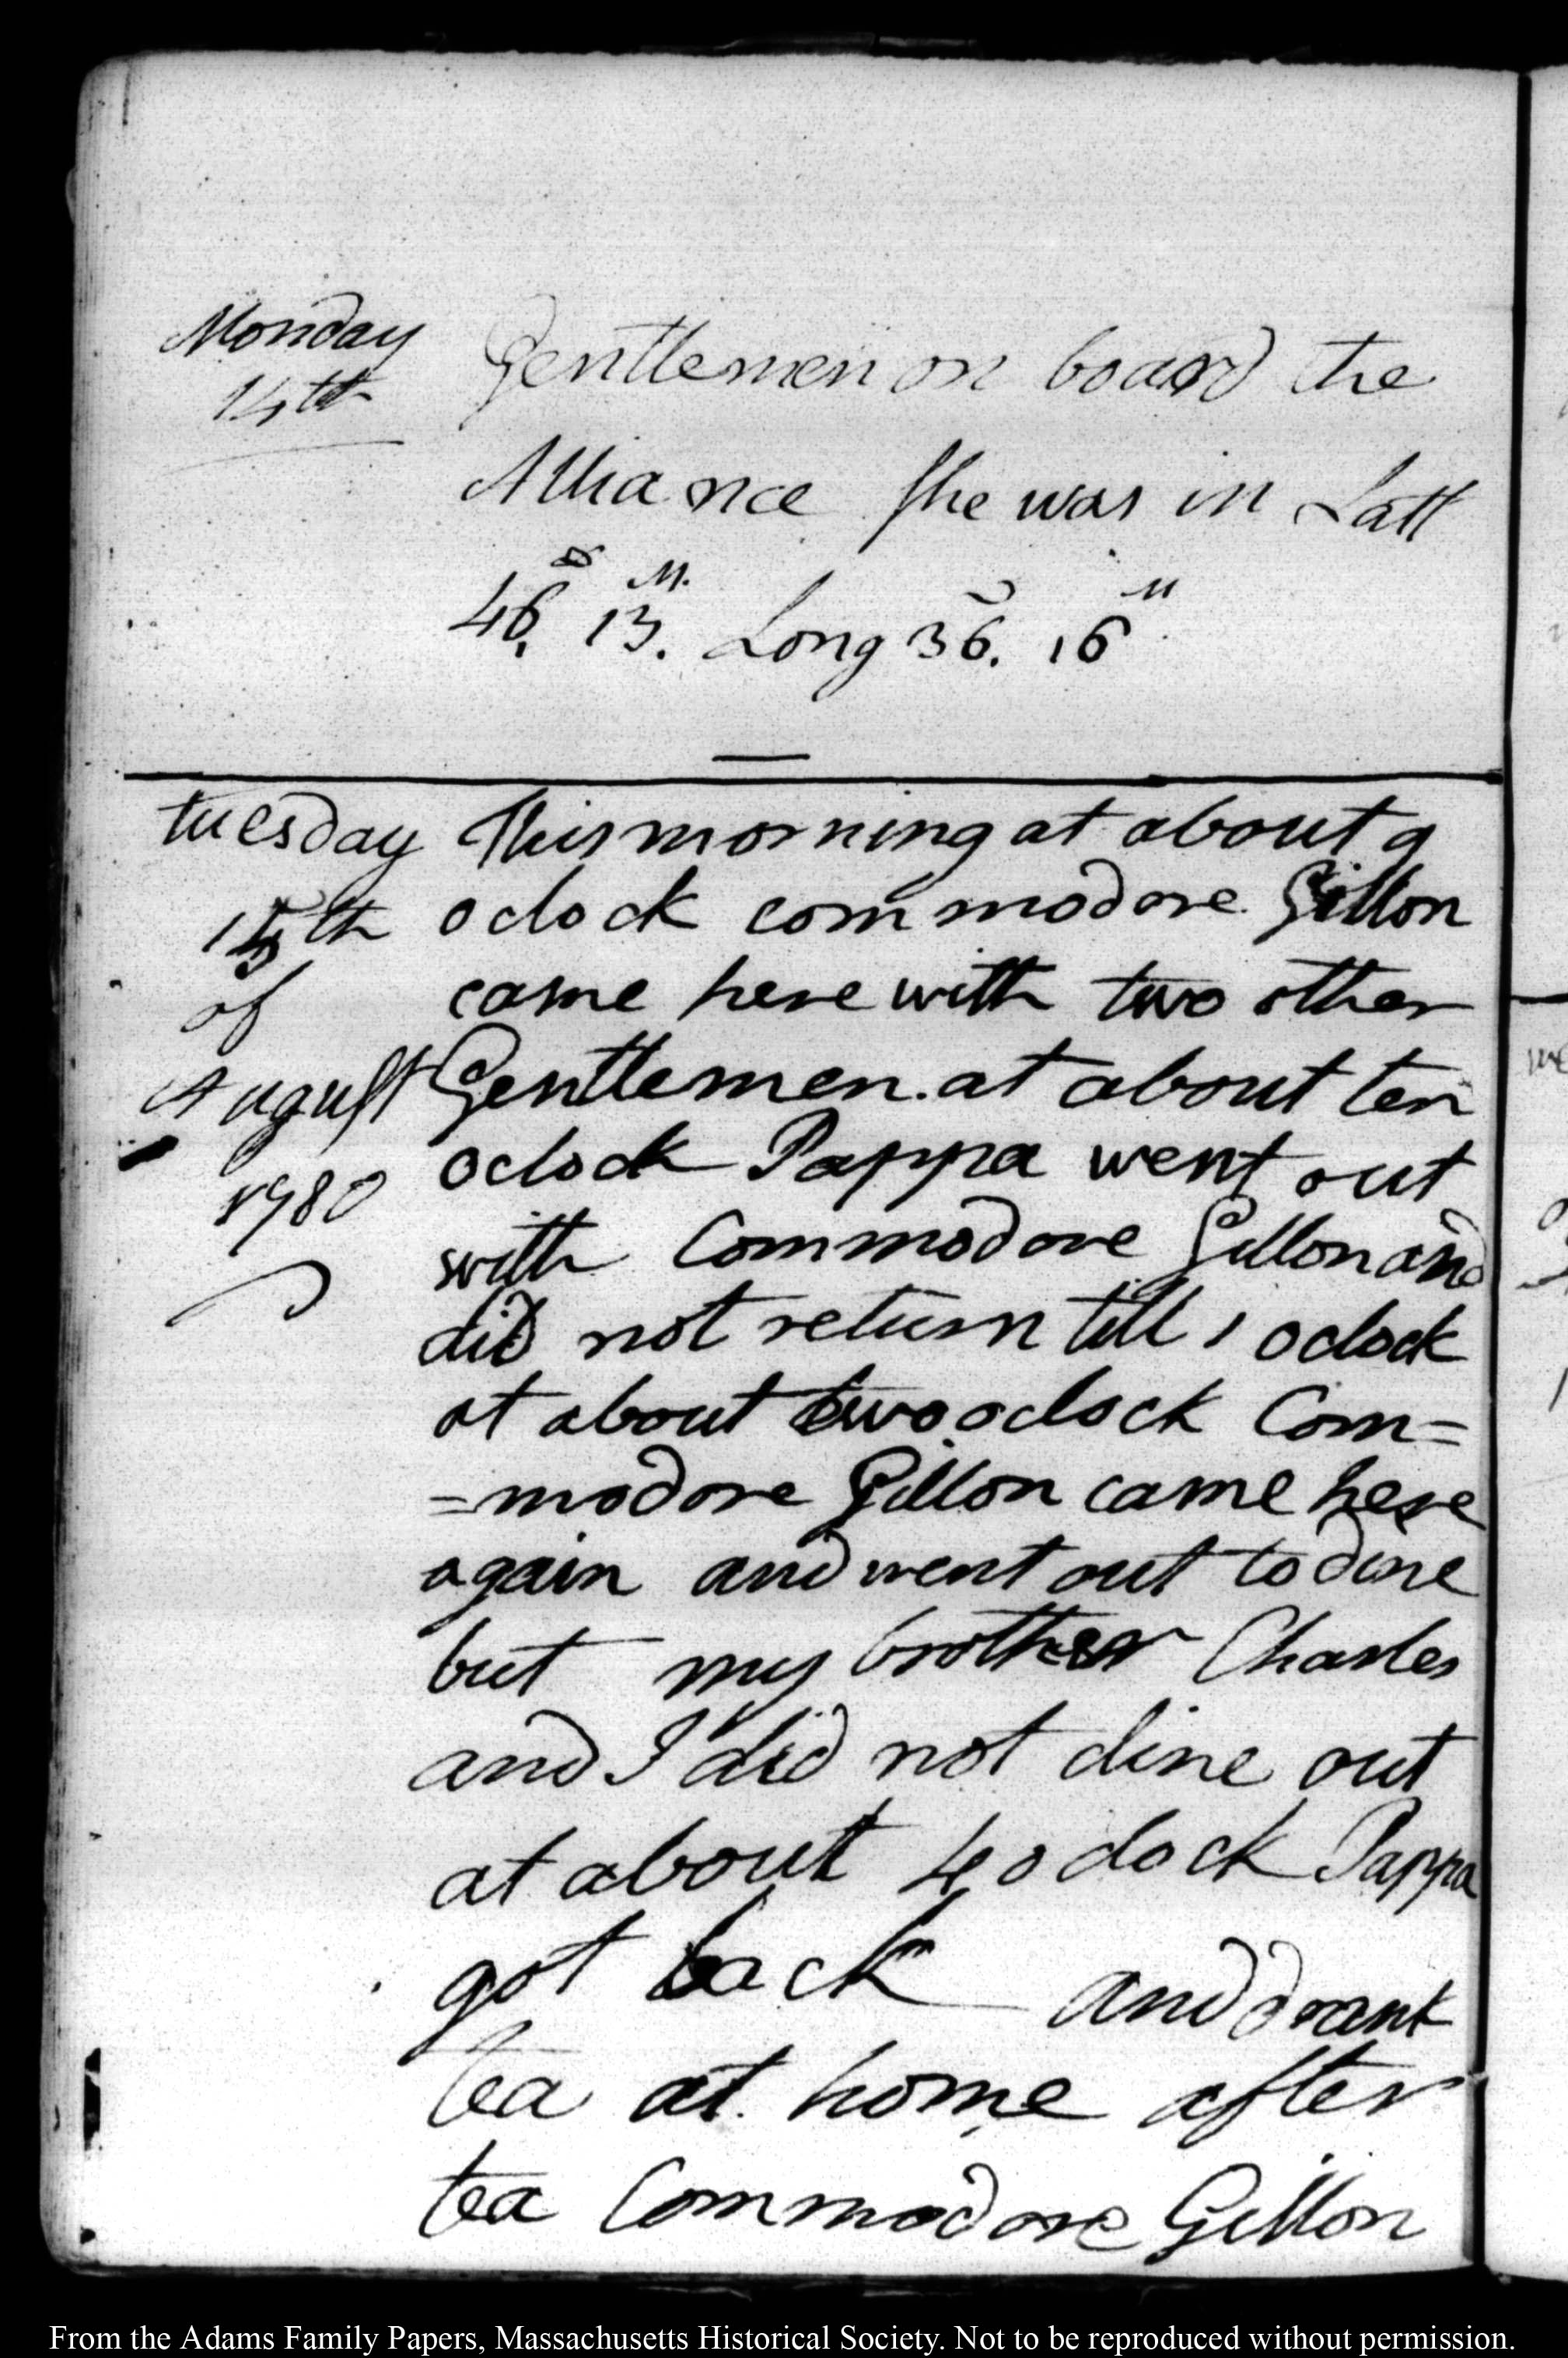 Monday
14th
Gentlemen on board the
Alliance She was in Latt
46,D 13.M. Long 36. 16M
tuesday
15th
of
August
1780
This morning at about 9
oclock commodore Gillon
came here with two other
Gentlemen. at about ten
oclock Pappa went out
with Commodore Gillon and
did not return till 1 oclock
at about two oclock Com=
=modore Gillon came here
again and went out to dine
but my brother Charles
and I did not dine out
at about 4 oclock Pappa
got back and drank
tea at home after
tea Commodore Gillon
From the Adams Family Papers, Massachusetts Historical Society. Not to be reproduced without permission.